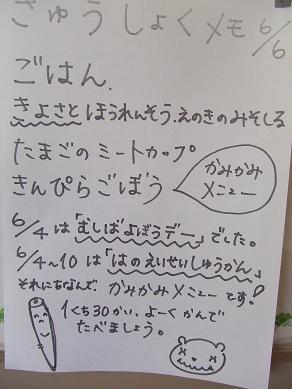 きゅうしょくメモ 6/6
ごはん.
きよさとほうれんそう.えのきのみそしる
たまごのミートカップ
きんぴらごぼう
かみかみ
メニュー
6/4は「むしばよぼうデー」でした。
6/4~10は「はのえいせいしゅうかん」
それにちなんで、かみかみメニューです!
1くち30かい、よーくかんで
たべましょう。